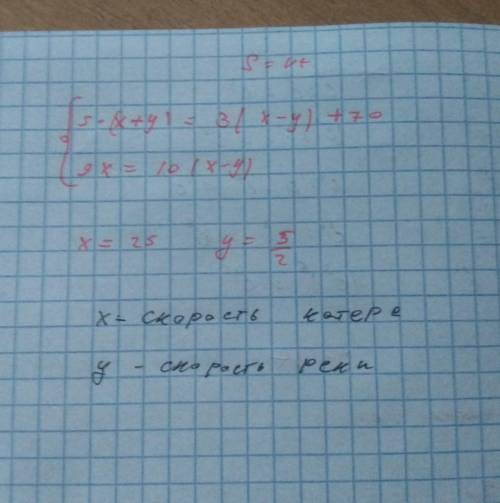 S = vt
5 · (x+y) = 3( x-y) +70
9x = 10 (x-y)
x = 25 y = 5/2
x - скорость катера
y - скорость реки